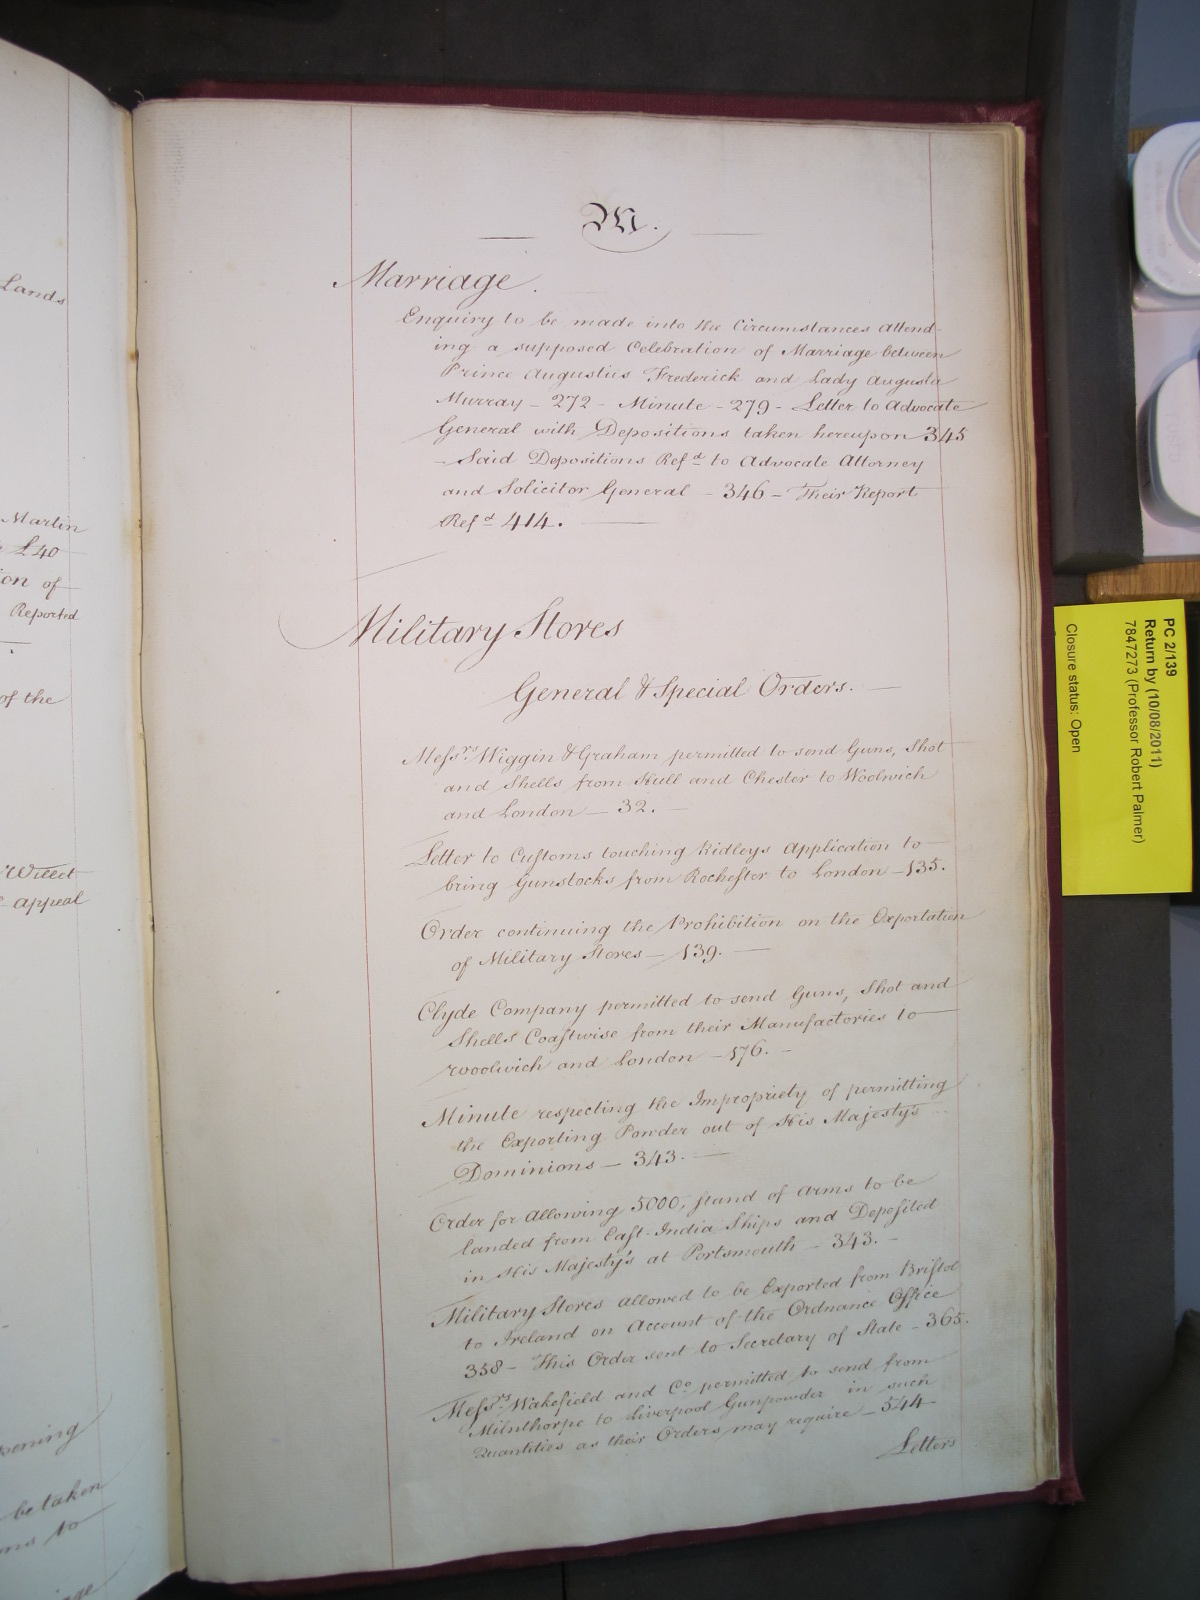 Lands
Martin
£40
ion of
Reported
of the
Willet
appeal
be taken
to
M.
Marriage.
Enquiry to be made into the Circumstances attend-
ing a supposed Celebration of Marriage between
Prince Augustus Frederick and Lady Augusta
Murray - 272 - Minute - 279 - Letter to Advocate
General with Depositions taken hereupon 345
- Said Depositions Refd to Advocate Attorney
and Solicitor General - 346 - Their Report
Refd 414.
Military Stores
General & Special Orders.
Meſsrs Wiggin & Graham permitted to send Guns, Shot
and Shells from Hull and Chester to Woolwich
and London - 32.
Letter to Cuſtoms touching Ridleys Application to
bring Gunstocks from Rocheſter to London - 135.
Order continuing the Prohibition on the Exportation
of Military Stores - 139.
Clyde Company permitted to send Guns, Shot and
Shells Coaſtwise from their Manufactories to
Woolwich and London - 176. -
Minute respecting the Impropriety of permitting
the Exporting Powder out of His Majesty's
Dominions - 343.
Order for Allowing 5000, ſtand of Arms to be
landed from Eaſt-India Ships and Depoſited
in His Majesty's at Portsmouth - 343. -
Military Stores allowed to be Exported from Briſtol
to Ireland on Account of the Ordnance Office
358 - This Order sent to Secretary of State - 365.
Meſsrs Wakefield and Co permitted to send from
Milnthorpe to Liverpool Gunpowder in such
Quantities as their Orders may require - 544
Letters
PC 2/139
Return by (10/08/2011)
7847273 (Professor Robert Palmer)
Closure status: Open